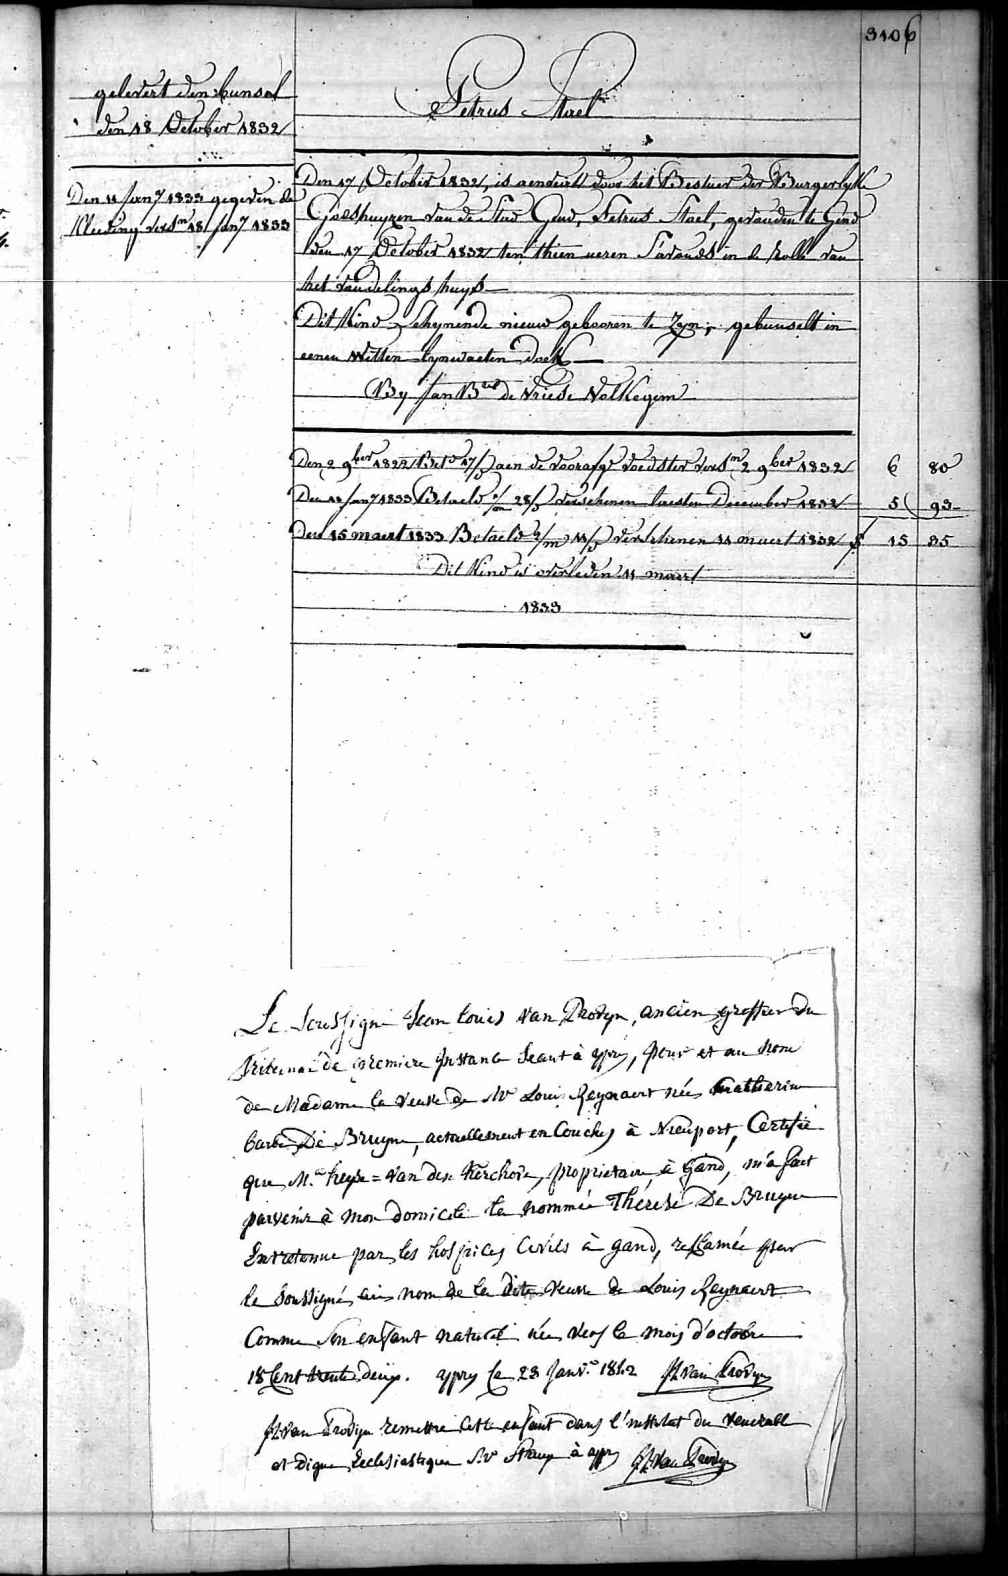 3106
gelevert den bunsel
den 18 October 1832
Den 11 Jany 1833 gegeven de
Kleeding vers.m 18 Jany 1833
Petrus Stael
Den 17 October 1832, is aenveirt door het Bestuer der Burgerlyke
Godshuyzen van de Stad Gend, Petrus Stael, gevonden te Gend
den 17 October 1832 ten thien ueren s'avonds in de rolle van
het vondelings huys
Dit Kind schynende nieuw gebooren te zyn, gebunselt in
eenen witten lynwaeten doek
By Jan B.te de Vriese Nolkegem
Den 2 9ber 1832 Bet.d 17/ aen de voorafge voedster vers.n 2 9ber 1832 6 80
Den 11 Jany 1833 Betaeld 28/ verschenen laesten December 1832 5 93
Den 15 maert 1833 Betaeld 2/m 11/ verschenen 11 maert 1832 f 15 35
Dit Kind is overleden 11 maert
1833
Le Soussigné Jean Louis Van Provyn, ancien greffier du
Tribunal de première Instance séant à ypres, pour et au nom
de Madame la veuve de Mr Louis Reynaert née Catherine
Barbe De Bruyne, actuellement en Couches à Nieuport, Certifie
que M. heyse = Van den Kerchove, propriétaire à Gand, m'a fait
parvenir à mon domicile la nommée Thérèse De Bruyne
Entretenue par les hospices Civils à gand, reclamée par
le soussigné au nom de la dite veuve de Louis Reynaert
Comme son enfant naturel née vers le mois d'octobre
18 Cent trente deux. ypres le 23 Janv. 1842 JL van Provyn
JL van Provyn remettra cette enfant dans l'institut du venerable
et digne Ecclesiastique Mr Struye à ypres JL Van Provyn